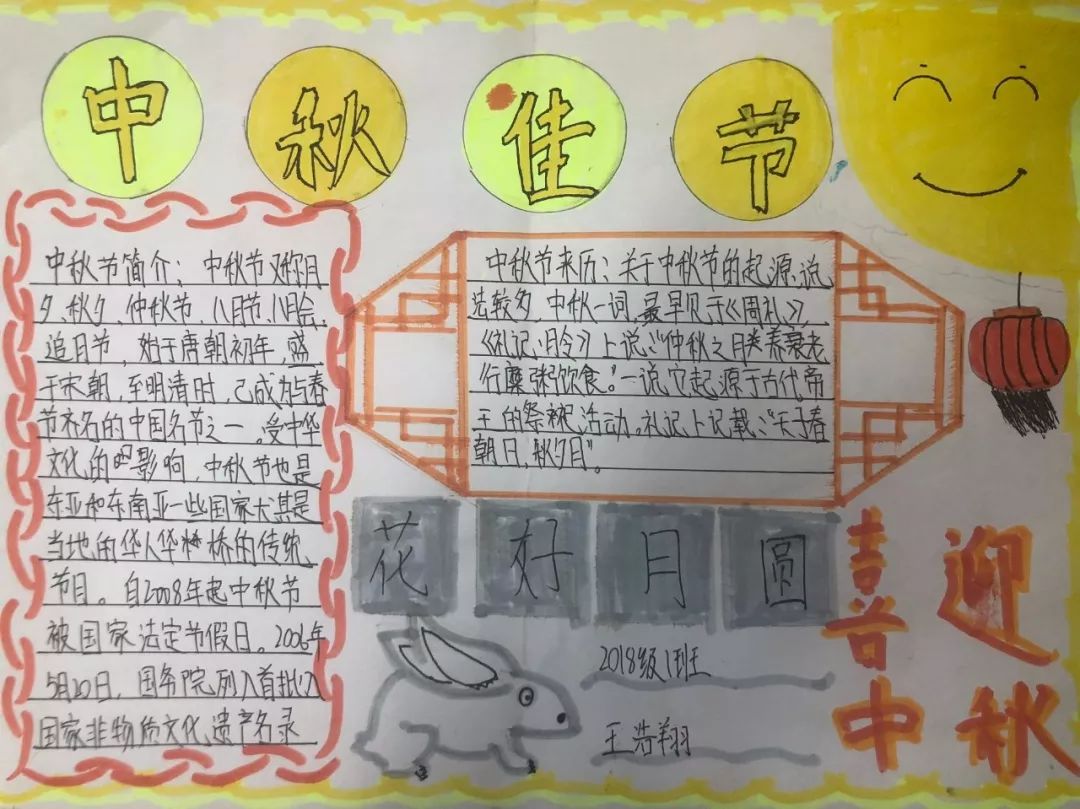 中秋佳节
中秋节简介：中秋节又称月
夕、秋夕、仲秋节、八月节、八月会、
追月节，始于唐朝初年，盛
于宋朝，至明清时，已成为与春
节齐名的中国名节之一。受中华
文化的影响，中秋节也是
东亚和东南亚一些国家尤其是
当地的华人华桥的传统
节目。自2008年起中秋节
被国家法定节假日。2006年
5月20日，国务院列入首批
国家非物质文化遗产名录
中秋节来历：关于中秋节的起源，说
法较多，中秋一词，最早见于《周礼》，
《礼记、月令》上说："仲秋之月养衰老
行糜粥饮食。"一说，它起源于古代帝
王的祭祀活动。礼记上记载："天子春
朝日，秋夕月"。
花好月圆
2018级1班
王浩翔
喜迎
中秋